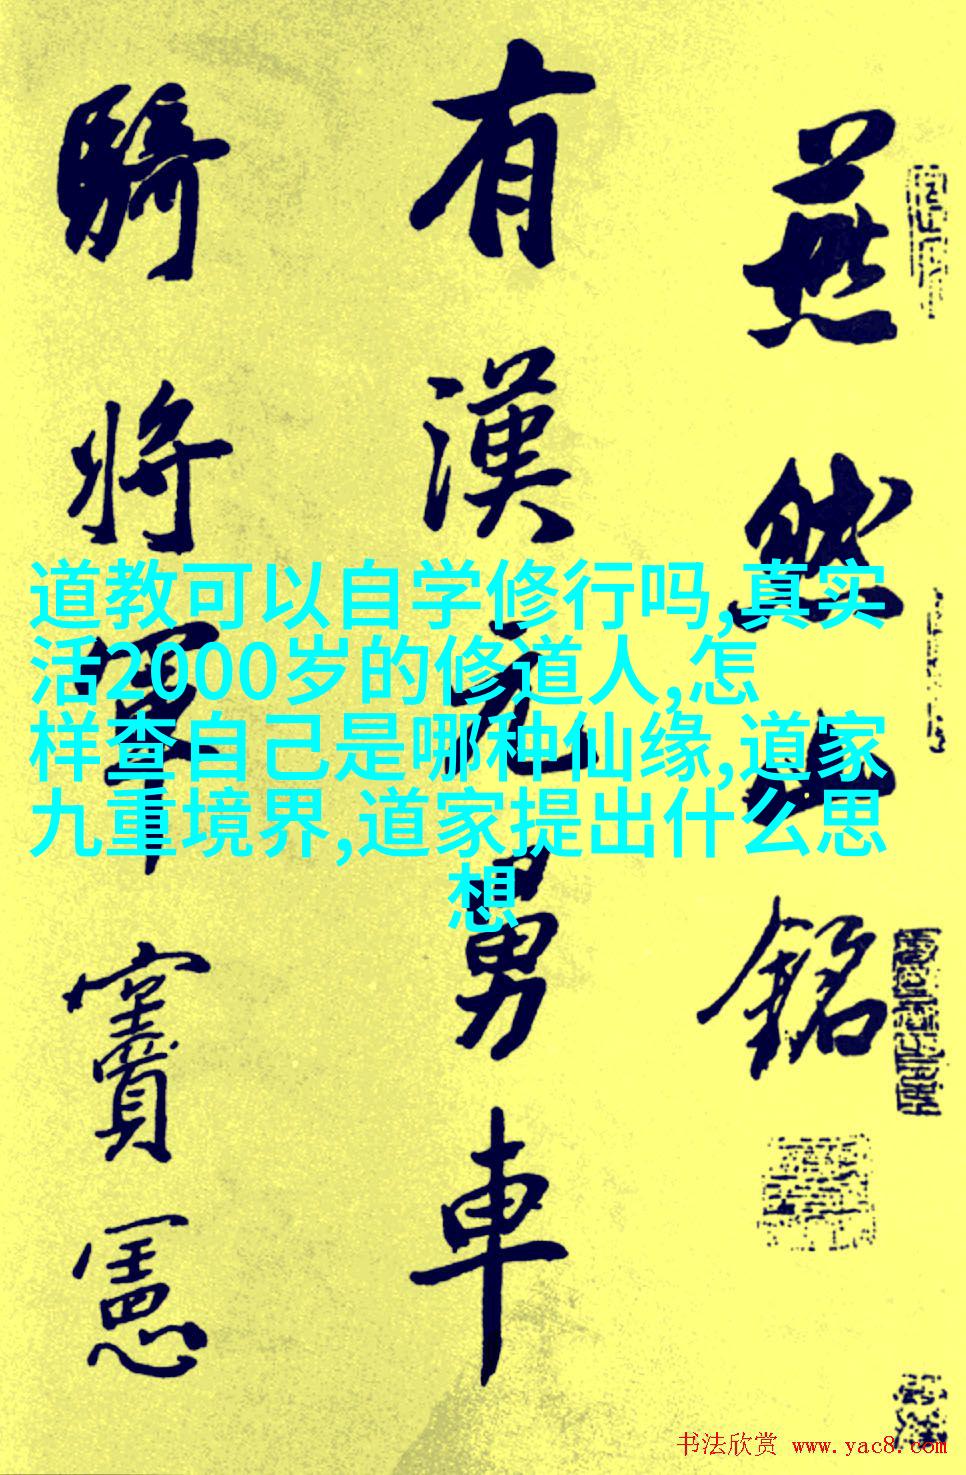 燕然山銘
有漢元舅車
騎將軍竇憲
道教可以自学修行吗,真实
活2000岁的修道人,怎
样查自己是哪种仙缘,道家
九重境界,道家提出什么思
想
书法欣赏 www.yac8.com